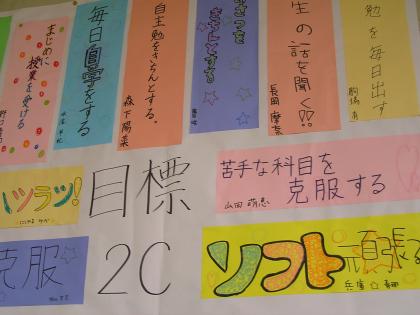 まじめに
授業を受ける
毎日自学をする
自主勉をきちんとする。
森下陽菜
きちんとする
生の話を聞く!!
長岡摩奈
勉を毎日出す
ハツラツ!
目標
2C
苦手な科目を
克服する
山田萌恵
克服
ソフト頑張る